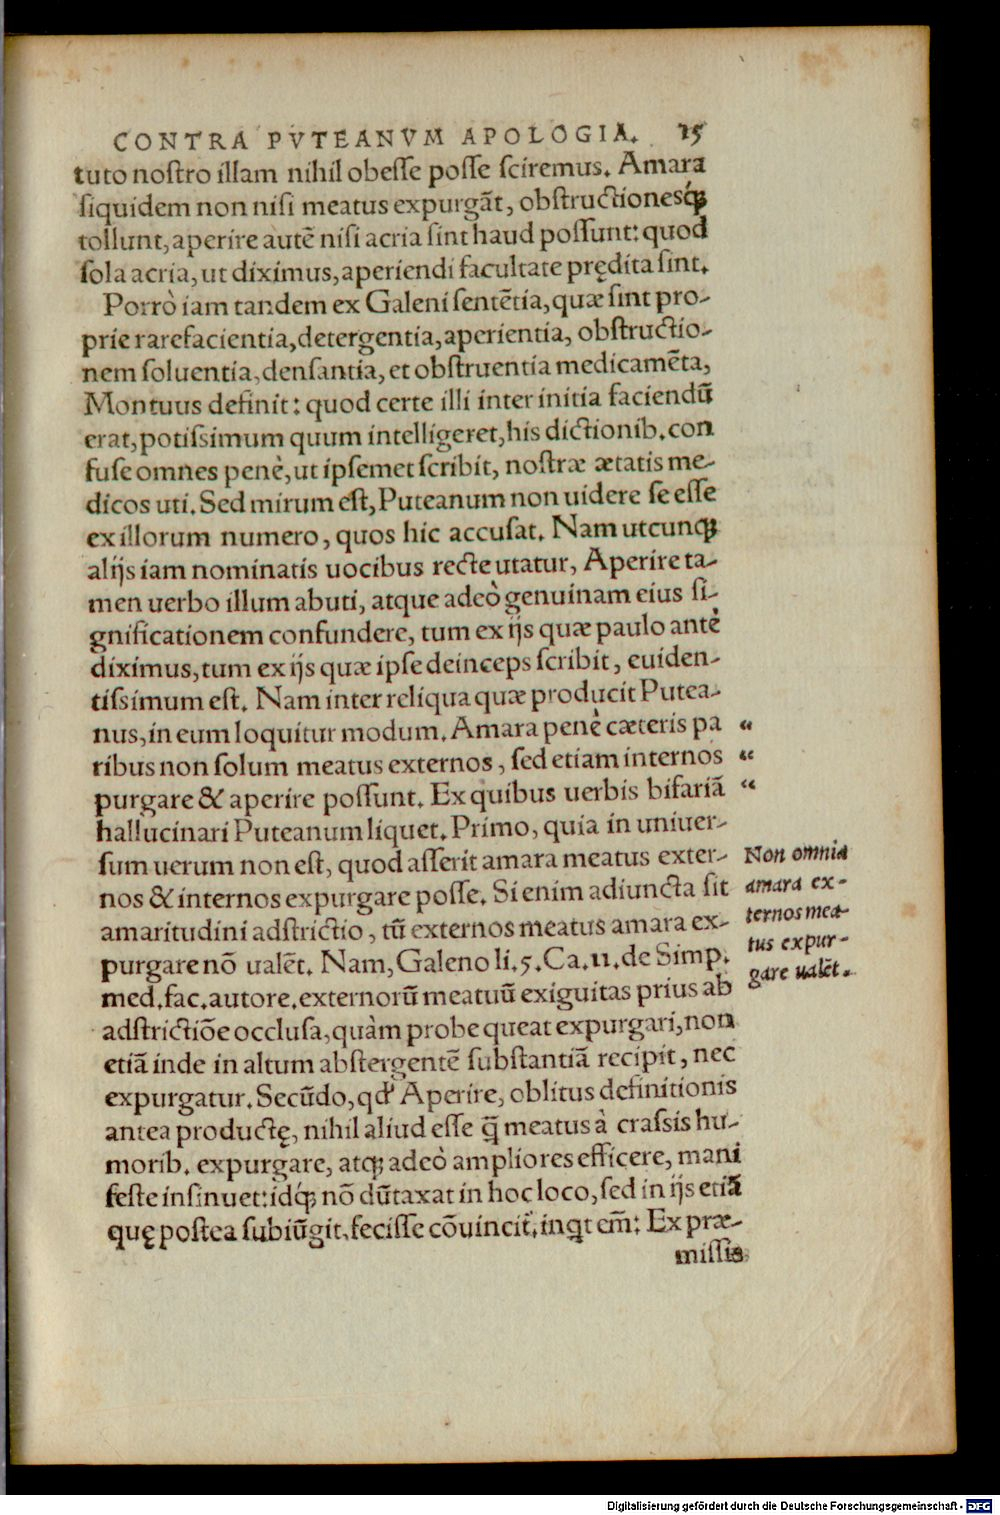 CONTRA PVTEANVM APOLOGIA. 15
tuto nostro illam nihil obesse posse sciremus. Amara
siquidem non nisi meatus expurgãt, obstructionesq́ꝫ
tollunt, aperire autẽ nisi acria sint haud possunt: quod
sola acria, ut diximus, aperiendi facultate prędita sint.
Porrò iam tandem ex Galeni sentẽtia, quæ sint pro-
prie rarefacientia, detergentia, aperientia, obstructio-
nem soluentia, densantia, et obstruentia medicamẽta,
Montuus definit: quod certe illi inter initia faciendũ
erat, potissimum quum intelligeret, his dictionib. con
fuse omnes penè, ut ipsemet scribit, nostræ ætatis me-
dicos uti. Sed mirum est, Puteanum non uidere se esse
ex illorum numero, quos hic accusat. Nam utcunqꝫ
alijs iam nominatis uocibus recte utatur, Aperire ta-
men uerbo illum abuti, atque adeò genuinam eius si-
gnificationem confundere, tum ex ijs quæ paulo antè
diximus, tum ex ijs quæ ipse deinceps scribit, euiden-
tissimum est. Nam inter reliqua quæ producit Putea-
nus, in eum loquitur modum. Amara penè cæteris pa “
ribus non solum meatus externos, sed etiam internos “
purgare & aperire possunt. Ex quibus uerbis bifariã “
hallucinari Puteanum liquet. Primo, quia in uniuer-
sum uerum non est, quod asserit amara meatus exter-
nos & internos expurgare posse. Si enim adiuncta sit
amaritudini adstrictio, tũ externos meatus amara ex-
purgare nõ ualẽt. Nam, Galeno li. 5. Ca. 11. de Simp.
med. fac. autore. externorũ meatuũ exiguitas prius ab
adstrictiõe occlusa, quàm probe queat expurgari, non
etiã inde in altum abstergentẽ substantiã recipit, nec
expurgatur. Secũdo, qđ Aperire, oblitus definitionis
antea productę, nihil aliud esse q̃ meatus à crassis hu-
morib. expurgare, atqꝫ adeò ampliores efficere, mani
feste insinuet: idq́ꝫ nõ dũtaxat in hoc loco, sed in ijs etiã
quę postea subiũgit, fecisse cõuincit. inqt em̃: Ex præ-
missis
Non omnia
amara ex-
ternos mea-
tus expur-
gare ualẽt.
Digitalisierung gefördert durch die Deutsche Forschungsgemeinschaft - DFG